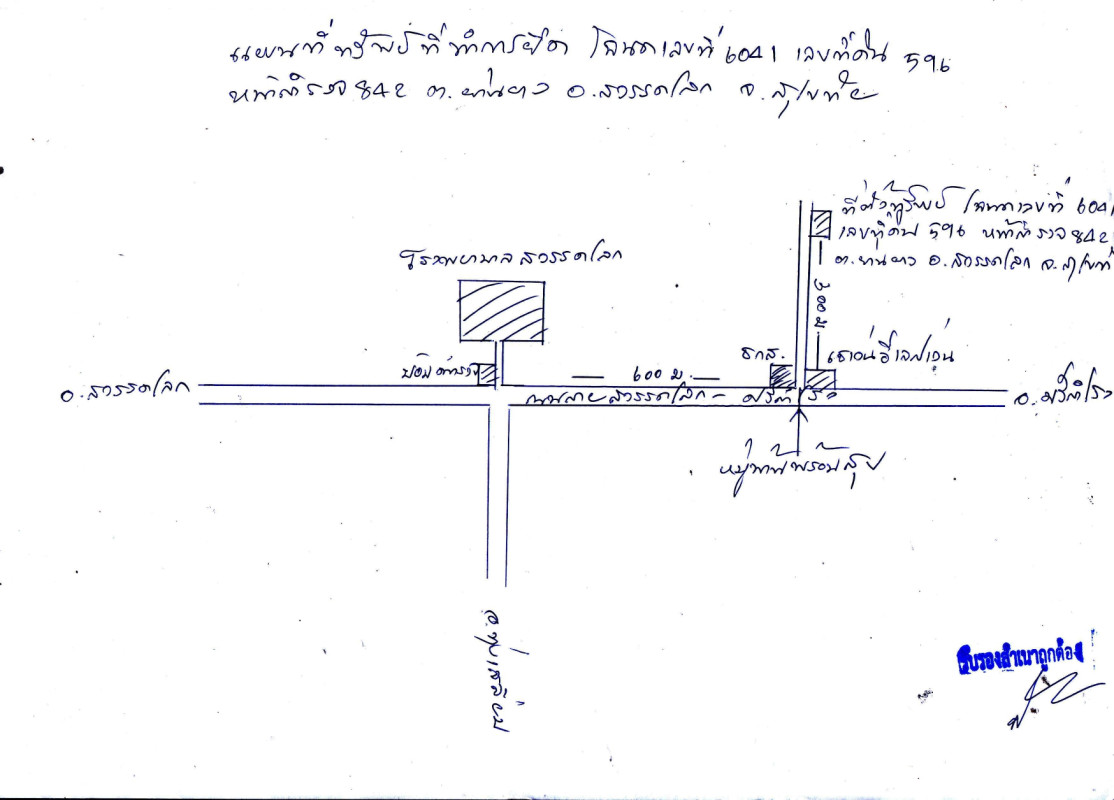 แผนที่ทรัพย์ที่ทำการยึด โฉนดเลขที่ 6041 เลขที่ดิน 596
หน้าสำรวจ 842 ต.ย่านยาว อ.สวรรคโลก จ.สุโขทัย
ที่ตั้งทรัพย์ โฉนดเลขที่ 6041
เลขที่ดิน 596 หน้าสำรวจ 842
ต.ย่านยาว อ.สวรรคโลก จ.สุโขทั
โรงพยาบาลสวรรคโลก
300 ม.
ป้อมตำรวจ
600 ม.
ธกส.
เซเว่นอีเลฟเว่น
อ.สวรรคโลก
ถนนสายสวรรคโลก - ศรีสำโรง
อ.ศรีสำโรง
หมู่บ้านพร้อมสุข
อ.ทุ่งเสลี่ยม
รับรองสำเนาถูกต้อง